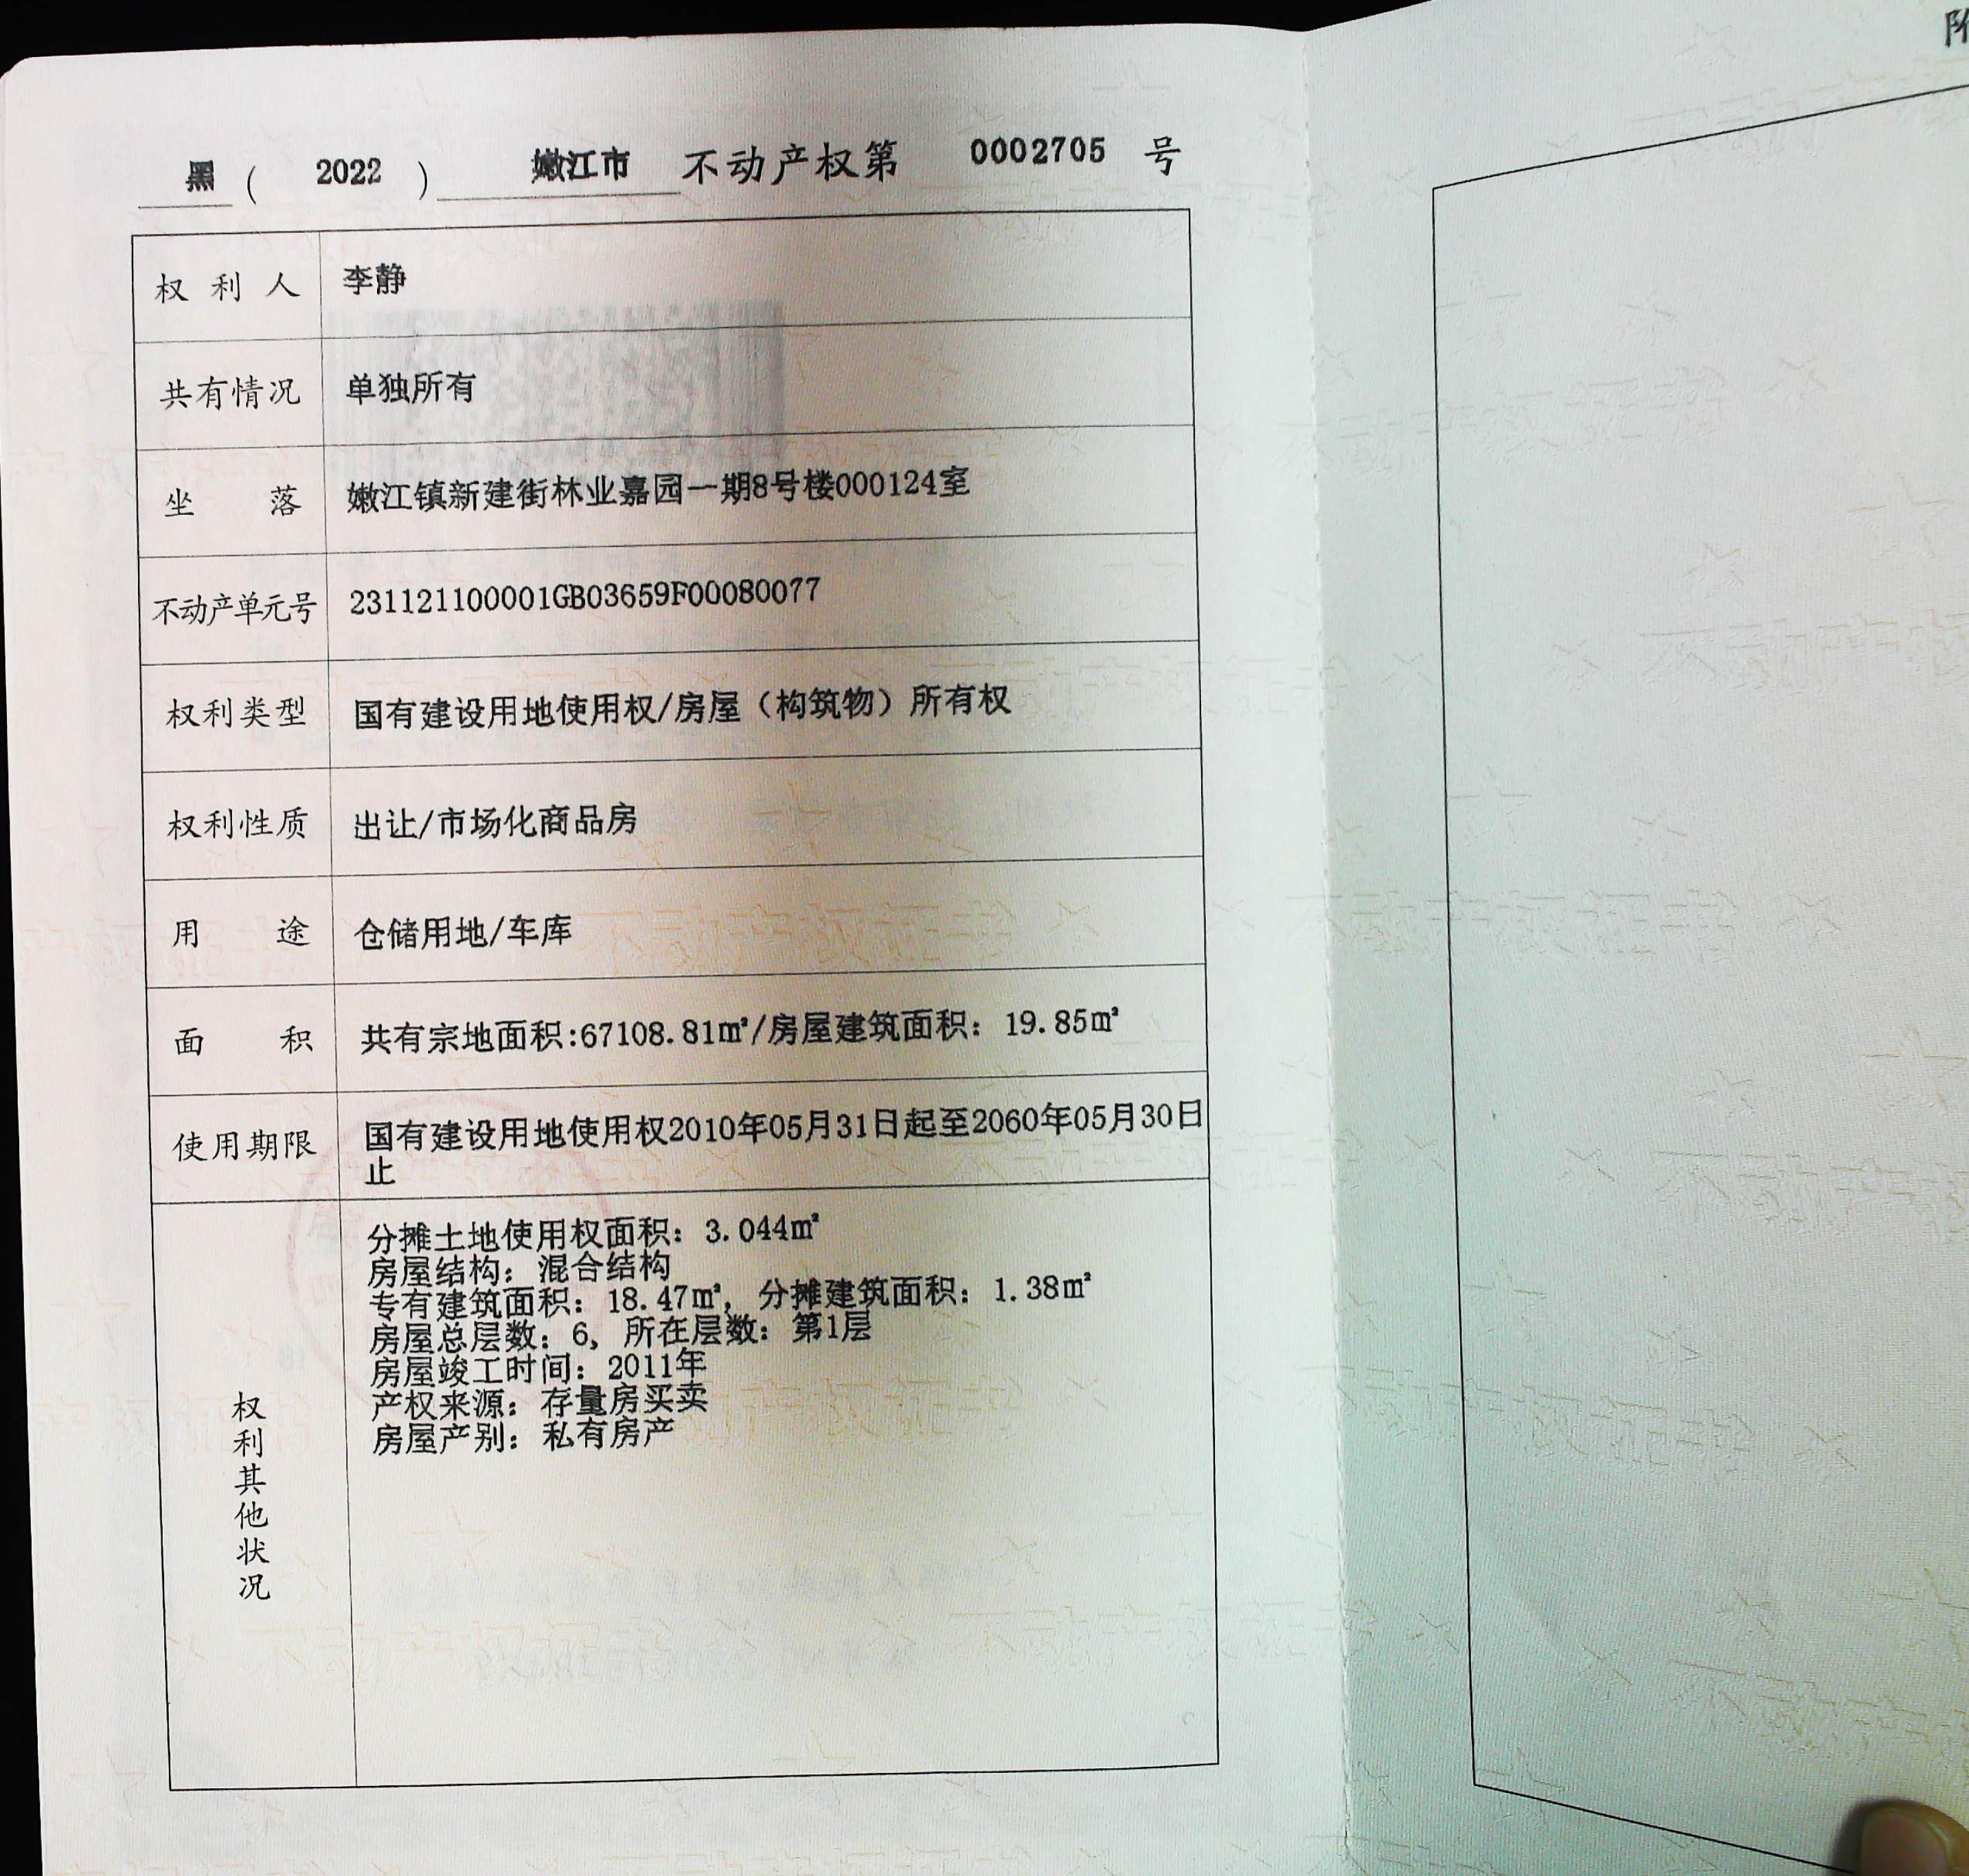 黑 ( 2022 ) 嫩江市 不动产权第 0002705 号
权利人 李静
共有情况 单独所有
坐落 嫩江镇新建街林业嘉园一期8号楼000124室
不动产单元号 231121100001GB03659F00080077
权利类型 国有建设用地使用权/房屋（构筑物）所有权
权利性质 出让/市场化商品房
用途 仓储用地/车库
面积 共有宗地面积:67108.81㎡/房屋建筑面积：19.85㎡
使用期限 国有建设用地使用权2010年05月31日起至2060年05月30日
止
权利其他状况
分摊土地使用权面积：3.044㎡
房屋结构：混合结构
专有建筑面积：18.47㎡，分摊建筑面积：1.38㎡
房屋总层数：6，所在层数：第1层
房屋竣工时间：2011年
产权来源：存量房买卖
房屋产别：私有房产